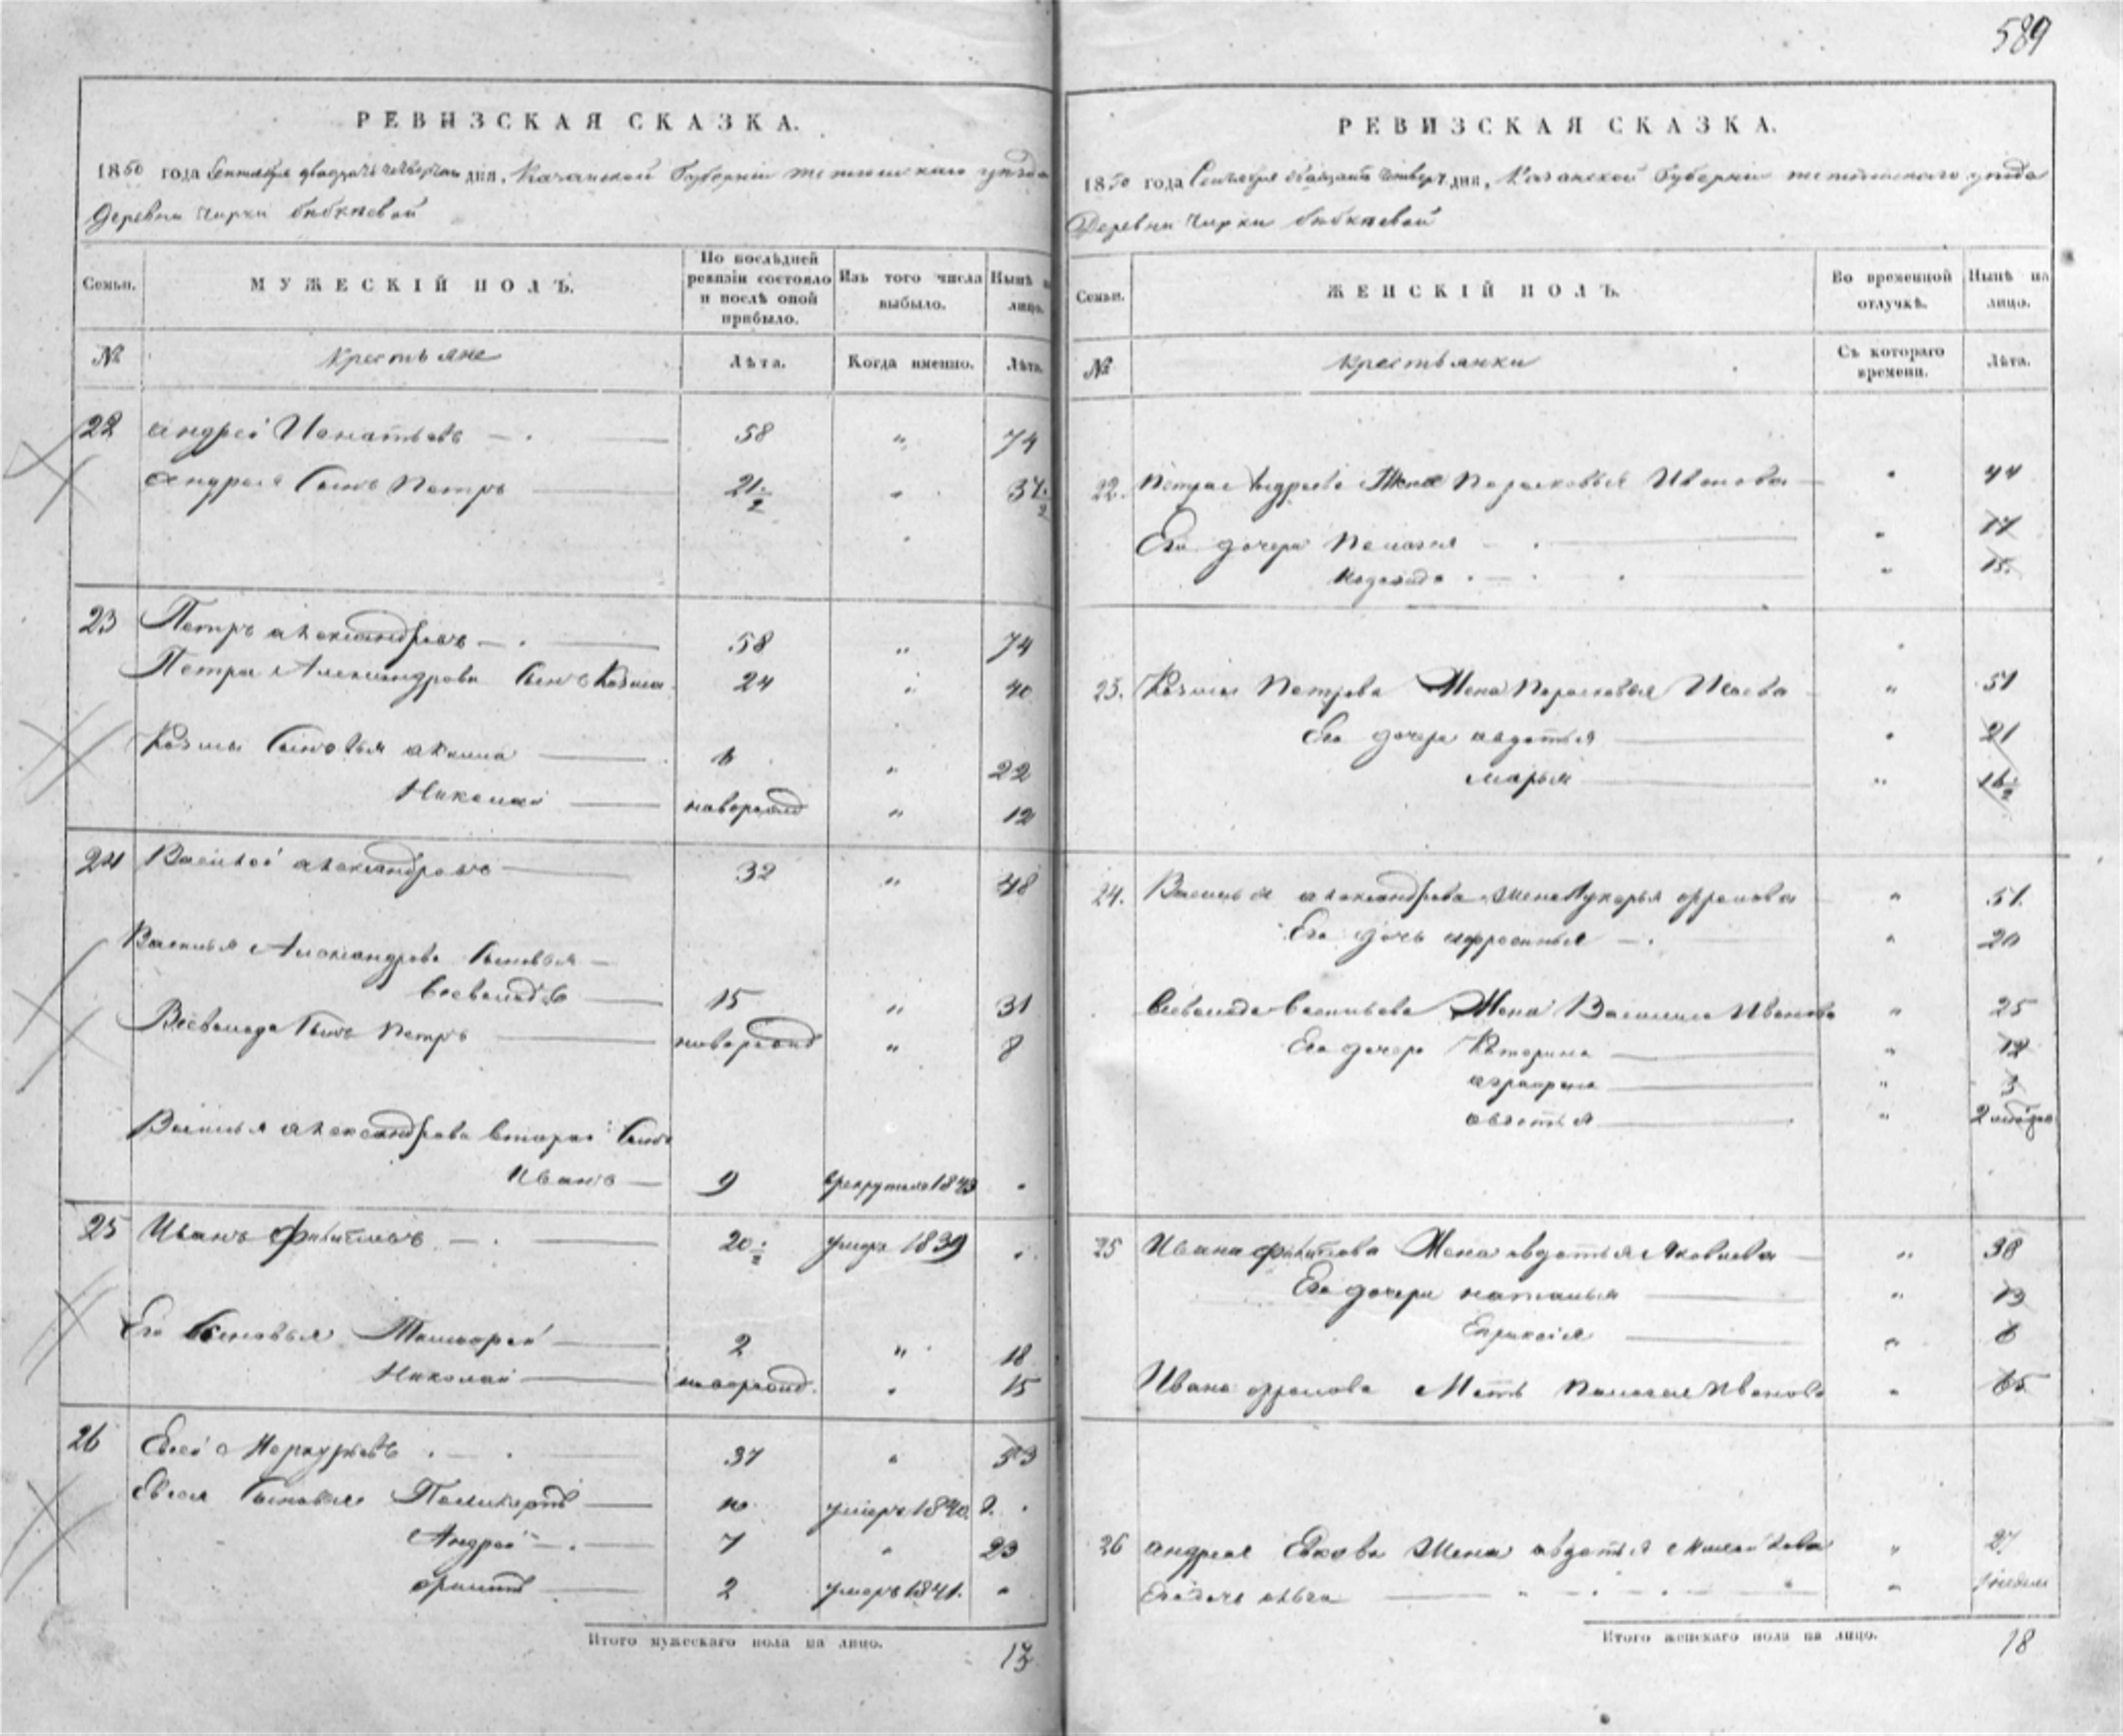 589
РЕВИЗСКАЯ СКАЗКА.
1850 года Сентября двадцать четвертаго дня, Казанской Губерніи тетюшскаго уѣзда
Деревни Чирки бибкѣевой
Семьи. МУЖЕСКІЙ ПОЛЪ. По послѣдней ревизіи состояло и послѣ оной прибыло. Изъ того числа выбыло. Нынѣ на лицо.
№ Крестьяне Лѣта. Когда именно. Лѣта.
22 андрей Игнатьевъ 58 " 74
андрея Сынъ Петръ 21 ½ " 37 ½
23 Петръ александровъ 58 " 74
Петра Александрова Сынъ Козма 24 " 40
Козмы Сыновья акима 6 " 22
Николай новорожд " 12
24 Василей александровъ 32 " 48
Василья Александрова Сыновья
Всеволодъ 15 " 31
Всеволода Сынъ Петръ новорожд " 8
Василья александрова второй Сынъ
Иванъ 9 врекруты 1843
25 Иванъ филиповъ 20 ½ умеръ 1839
Его Сыновья Тимофей 2 " 18
Николай новорожд. " 15
26 Евсей Меркурьевъ 37 " 53
Евсея Сыновья Поликарпъ 10 умеръ 1840
Андрей 7 " 23
филипъ 2 умеръ 1841.
Итого мужескаго пола на лицо. 13
РЕВИЗСКАЯ СКАЗКА.
1850 года Сентября двадцать четверт. дня, Казанской Губерніи тетюшскаго уѣзда
Деревни Чирки бибкѣевой
Семьи. ЖЕНСКІЙ ПОЛЪ. Во временной отлучкѣ. Нынѣ на лицо.
№ крестьянки Съ котораго времени. Лѣта.
22. Петра Андреева Жена Парасковья Иванова " 44
Его дочери Пелагея " 17
" 15
23. Козмы Петрова Жена Парасковья Исаева " 51
Его дочери авдотья " 21
марья " 16 ½
24. Василья александрова жена Лукерья фролова " 51.
Его дочь афросинья " 20
Всеволода Васильева Жена Василиса Иванова " 25
Его дочери Катерина " 12
аграфена " 3
авдотья "
25 Ивана филипова Жена авдотья Яковлева " 38
Его дочери наталья " 13
" 6
Ивана фролова Мать Пелагея Иванова " 65
26 андрея Жена авдотья " 27
Его дочь " 1 недели
Итого женскаго пола на лицо. 18